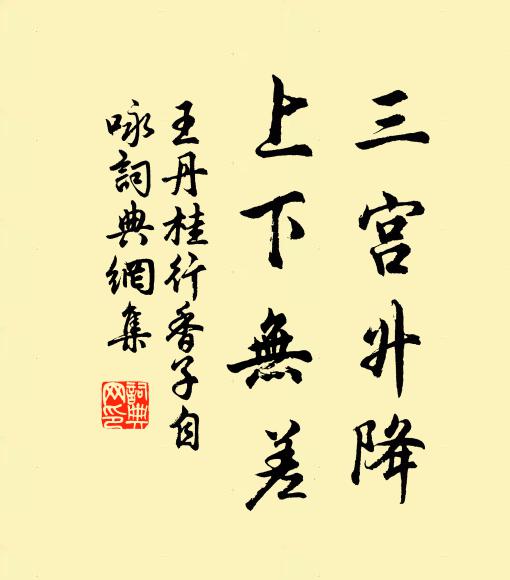 三宫升降
上下無差
王丹桂行香子自
咏詞典網集
詞典
网印